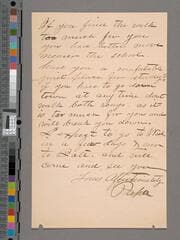 If you find the walk
too much for you
you had better move
nearer the school
have you a
quiet place for study
if you have to go down
town at any time don't
walk both ways as it
is too much for you and
ride back you
I expect to go to
in a few days
to and will
come and see you
Yours Affectionately
Papa